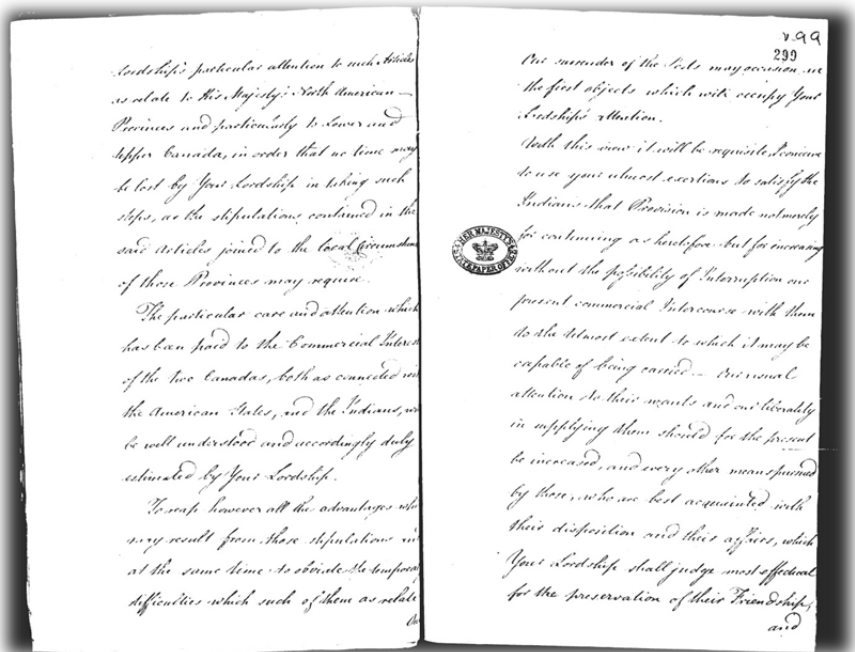 Lordship's particular attention to such Articles
as relate to His Majesty's North American
Provinces and particularly to Lower and
Upper Canada, in order that no time may
be lost by Your Lordship in taking such
steps, as the stipulations contained in the
said Articles joined to the local Circumstan
of those Provinces may require.
The particular care and attention which
has been paid to the Commercial Interes
of the two Canadas, both as connected
the American States, and the Indians,
be well understood and accordingly duly
estimated by Your Lordship.
To reap however all the advantages
may result from those stipulations
at the same time to obviate the temporary
difficulties which such of them as relate
v.99
299
Our surrender of the Posts may occasion, are
the first objects which will occupy Your
Lordship's attention.
With this view it will be requisite, I conceive
to use your utmost exertions to satisfy the
Indians that Provision is made not merely
for continuing as heretofore but for increasing
without the possibility of Interruption our
present commercial Intercourse with them
to the utmost extent to which it may be
capable of being carried. — Our usual
attention to their wants and our liberality
in supplying them should for the present
be increased, and every other means pursued
by those, who are best acquainted with
their disposition and their affairs, which
Your Lordship shall judge most effectual
for the preservation of their Friendship,
and
HER MAJESTY'S
STATE PAPER OFFICE